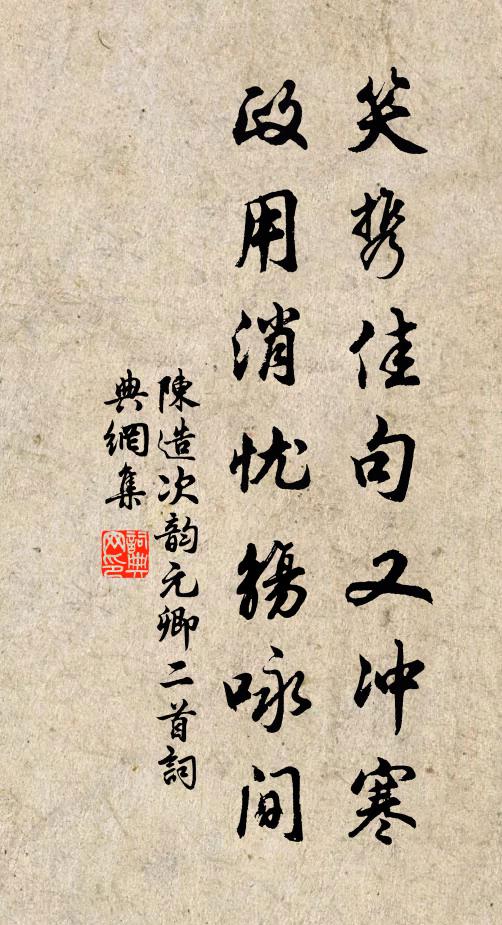 笑携佳句又冲寒
政用消忧觞咏间
陳造次韵元卿二首詞
典網集
詞典網印